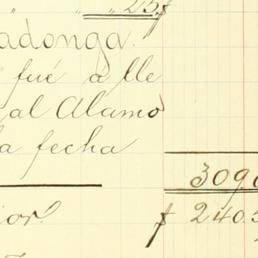 " " " 25 f
adonga.
" fué á lle
al Alamo
la fecha
309
ior. f 240.